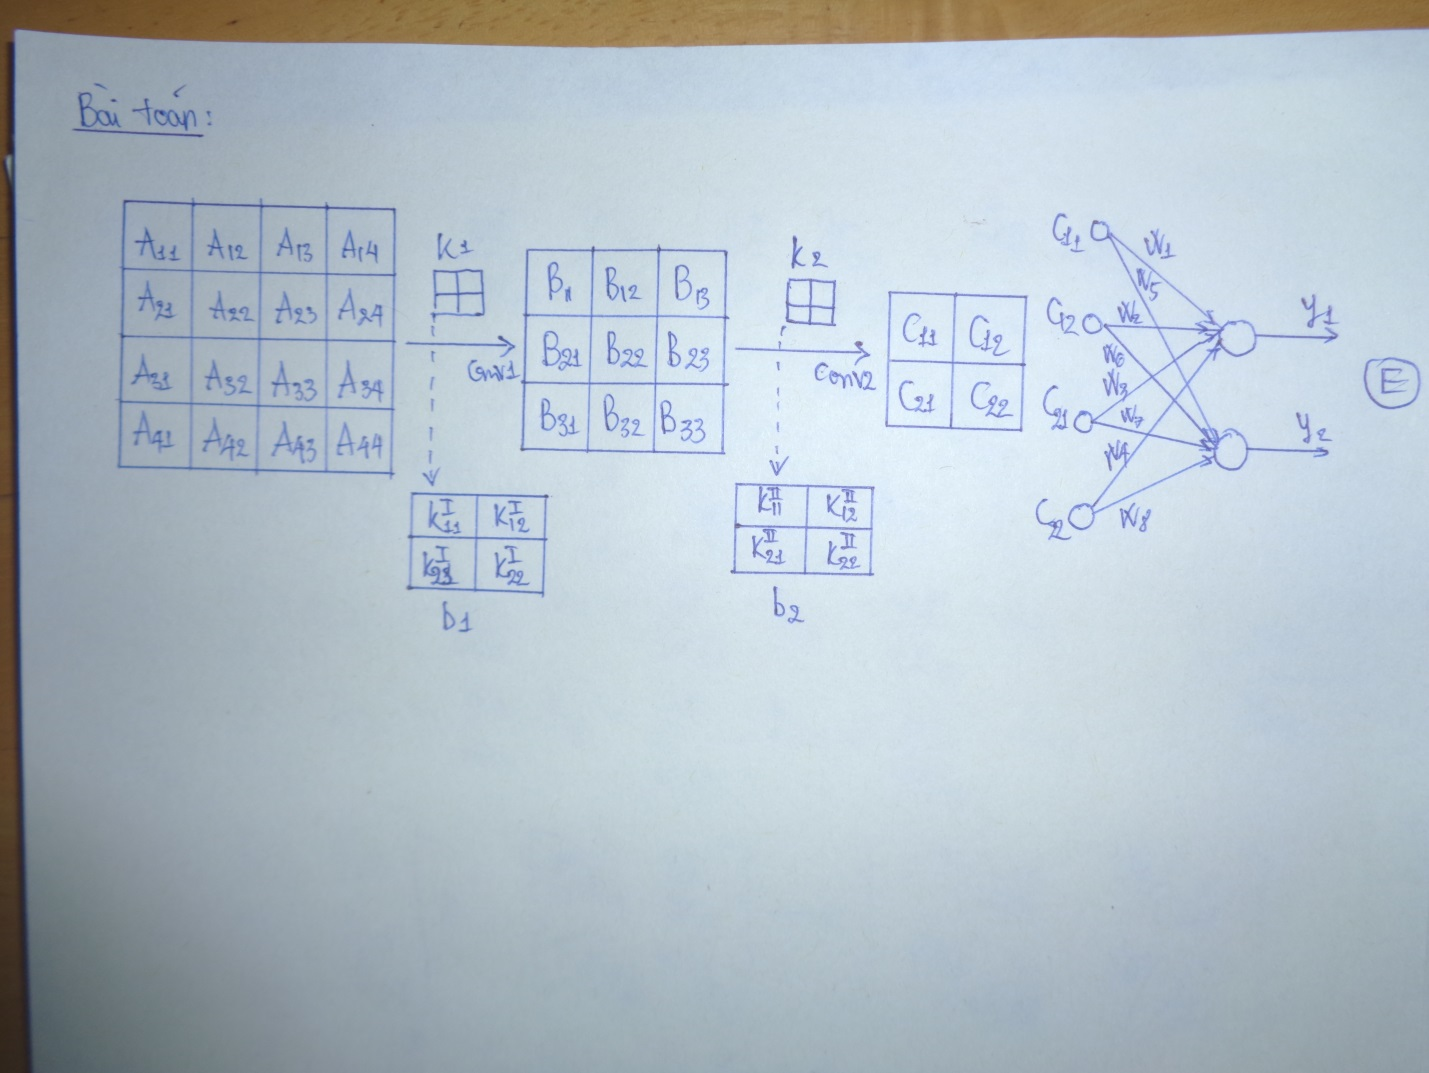 Bài toán:
A11 A12 A13 A14
A21 A22 A23 A24
A31 A32 A33 A34
A41 A42 A43 A44
K1
Conv1
K^I_11 K^I_12
K^I_21 K^I_22
b1
B11 B12 B13
B21 B22 B23
B31 B32 B33
K2
Conv2
K^II_11 K^II_12
K^II_21 K^II_22
b2
C11 C12
C21 C22
C11
C12
C21
C22
W1
W5
W2
W6
W3
W7
W4
W8
y1
y2
E